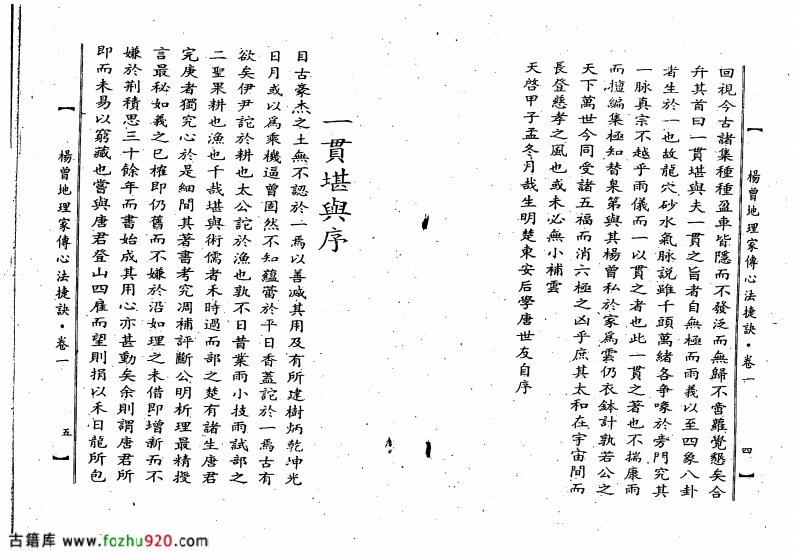 楊曾地理家傳心法捷訣·卷一
四
回視今古諸集種種盈車皆隱而不發泛而無歸不啻蘿覺懇矣合
升其首曰一貫堪輿夫一貫之旨者自無極而兩義以至四象八卦
者生於一也故龍穴砂水氣脉說雖千頭萬緒各爭喙於旁門究其
一脉真宗不越乎兩儀而一以貫之者也此一貫之著也不揣康雨
而擅編集極知替臬第與其楊曾私於家為雲仍衣鉢計孰若公之
天下萬世今同受諸五福而消六極之凶乎庶其太和在宇宙間而
長登慈孝之風也或未必無小補雲
天啓甲子孟冬月哉生明楚東安后學唐世友自序
一貫堪輿序
目古豪杰之土無不認於一焉以善减其用及有所建樹炳乾坤光
日月或以爲乘機逼曾固然不知蘊蕾於平日香蓋詫於一焉古有
欲矣伊尹詫於耕也太公詫於漁也孰不日昔業雨小技雨試部之
二聖果耕也漁也千哉堪與術儒者禾時過而部之楚有諸生唐君
完庚者獨究心於是細間其著書考究凋補評斷公明析理最精授
言最秘如羲之已榷即仍舊而不嫌於沿如理之未借即增新而不
嫌於荆積思三十餘年而書始成其用心亦甚動矣余則謂唐君所
即而未易以窮藏也嘗與唐君登山四雇而望則捐以禾日龍所包
楊曾地理家傳心法捷訣·卷一
五
古籍库 www.fozhu920.com